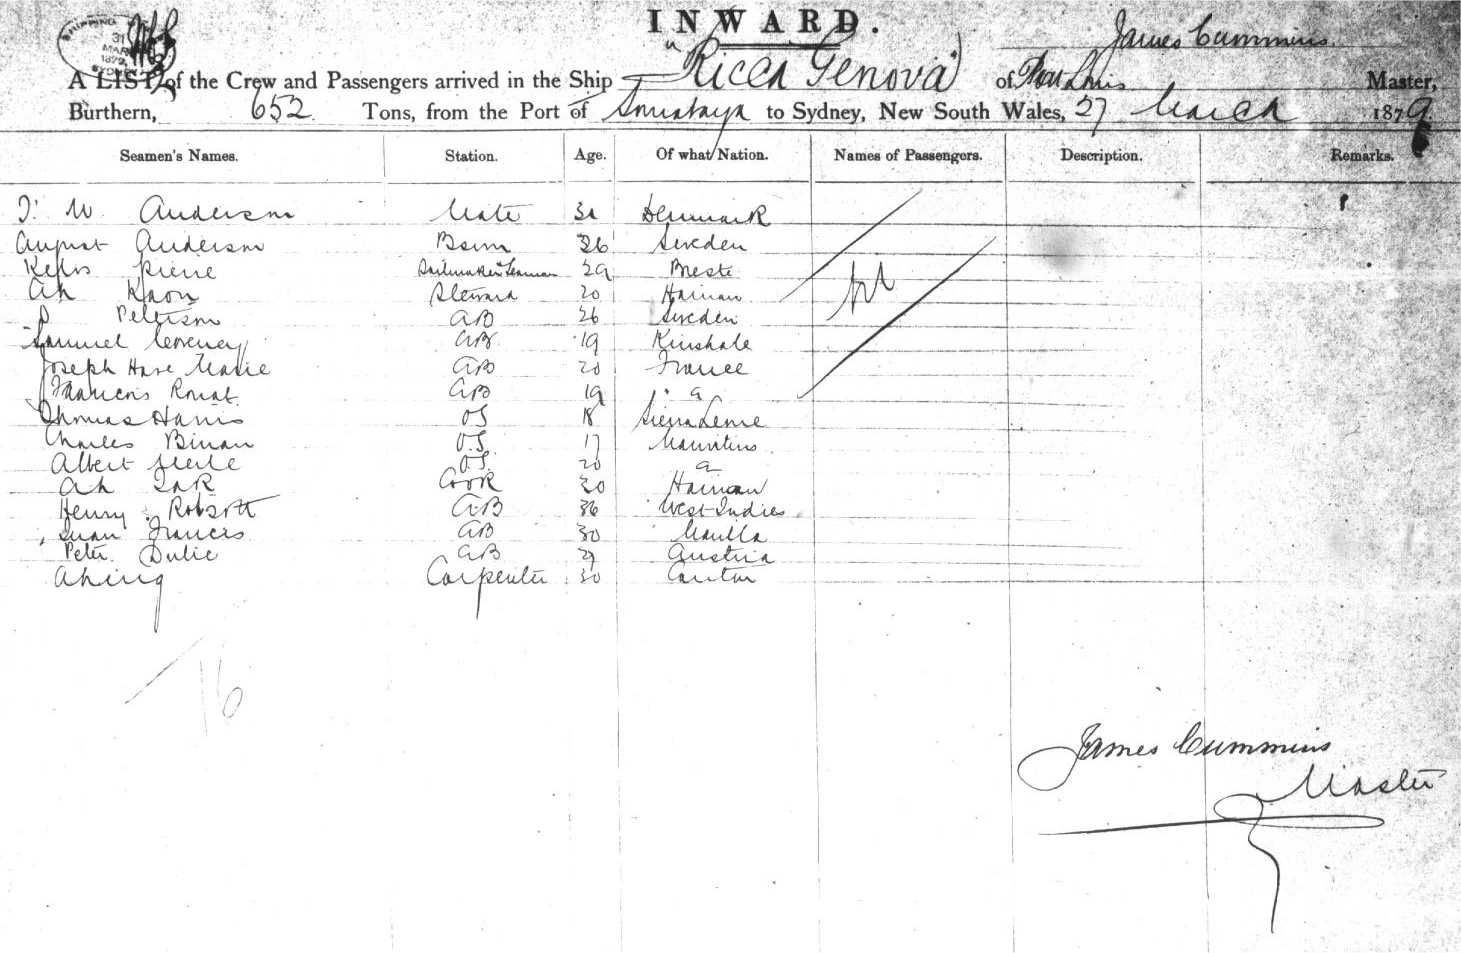 INWARD.
SHIPPING
31
MAR
1879
SYDNEY
James Cummins
A LIST of the Crew and Passengers arrived in the Ship "Ricca Genova" of Port Louis Master,
Burthern, 652 Tons, from the Port of Sourabaya to Sydney, New South Wales, 27 March 1879
Seamen's Names. Station. Age. Of what Nation. Names of Passengers. Description. Remarks.
W. Anderson Mate Denmark
August Anderson Bosun 26 Sweden
Pierre Sailmaker & Seaman 29 Brest
Ah Kaon Steward 20 Hainan
P Peterson AB 26 Sweden
Samuel AB 19 Kinshale
Joseph Marie AB 20 France
Francois AB 19 "
Thomas Harris OS 18 Sierra Leone
Charles Binan O.S. 17 Mauritius
Albert OS. 20
Ah Cook 30 Hainan
Henry AB 36 West Indies
Juan Frances AB 30 Manilla
Peter Dulic AB 29 Austria
Ahing Carpenter 30 Canton
Nil
16
James Cummins
Master